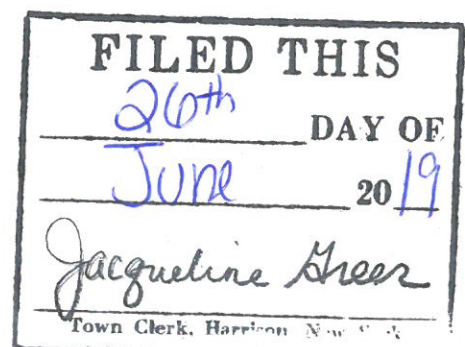 FILED THIS
26th DAY OF
June 2019
Jacqueline Greer
Town Clerk, Harrison New York